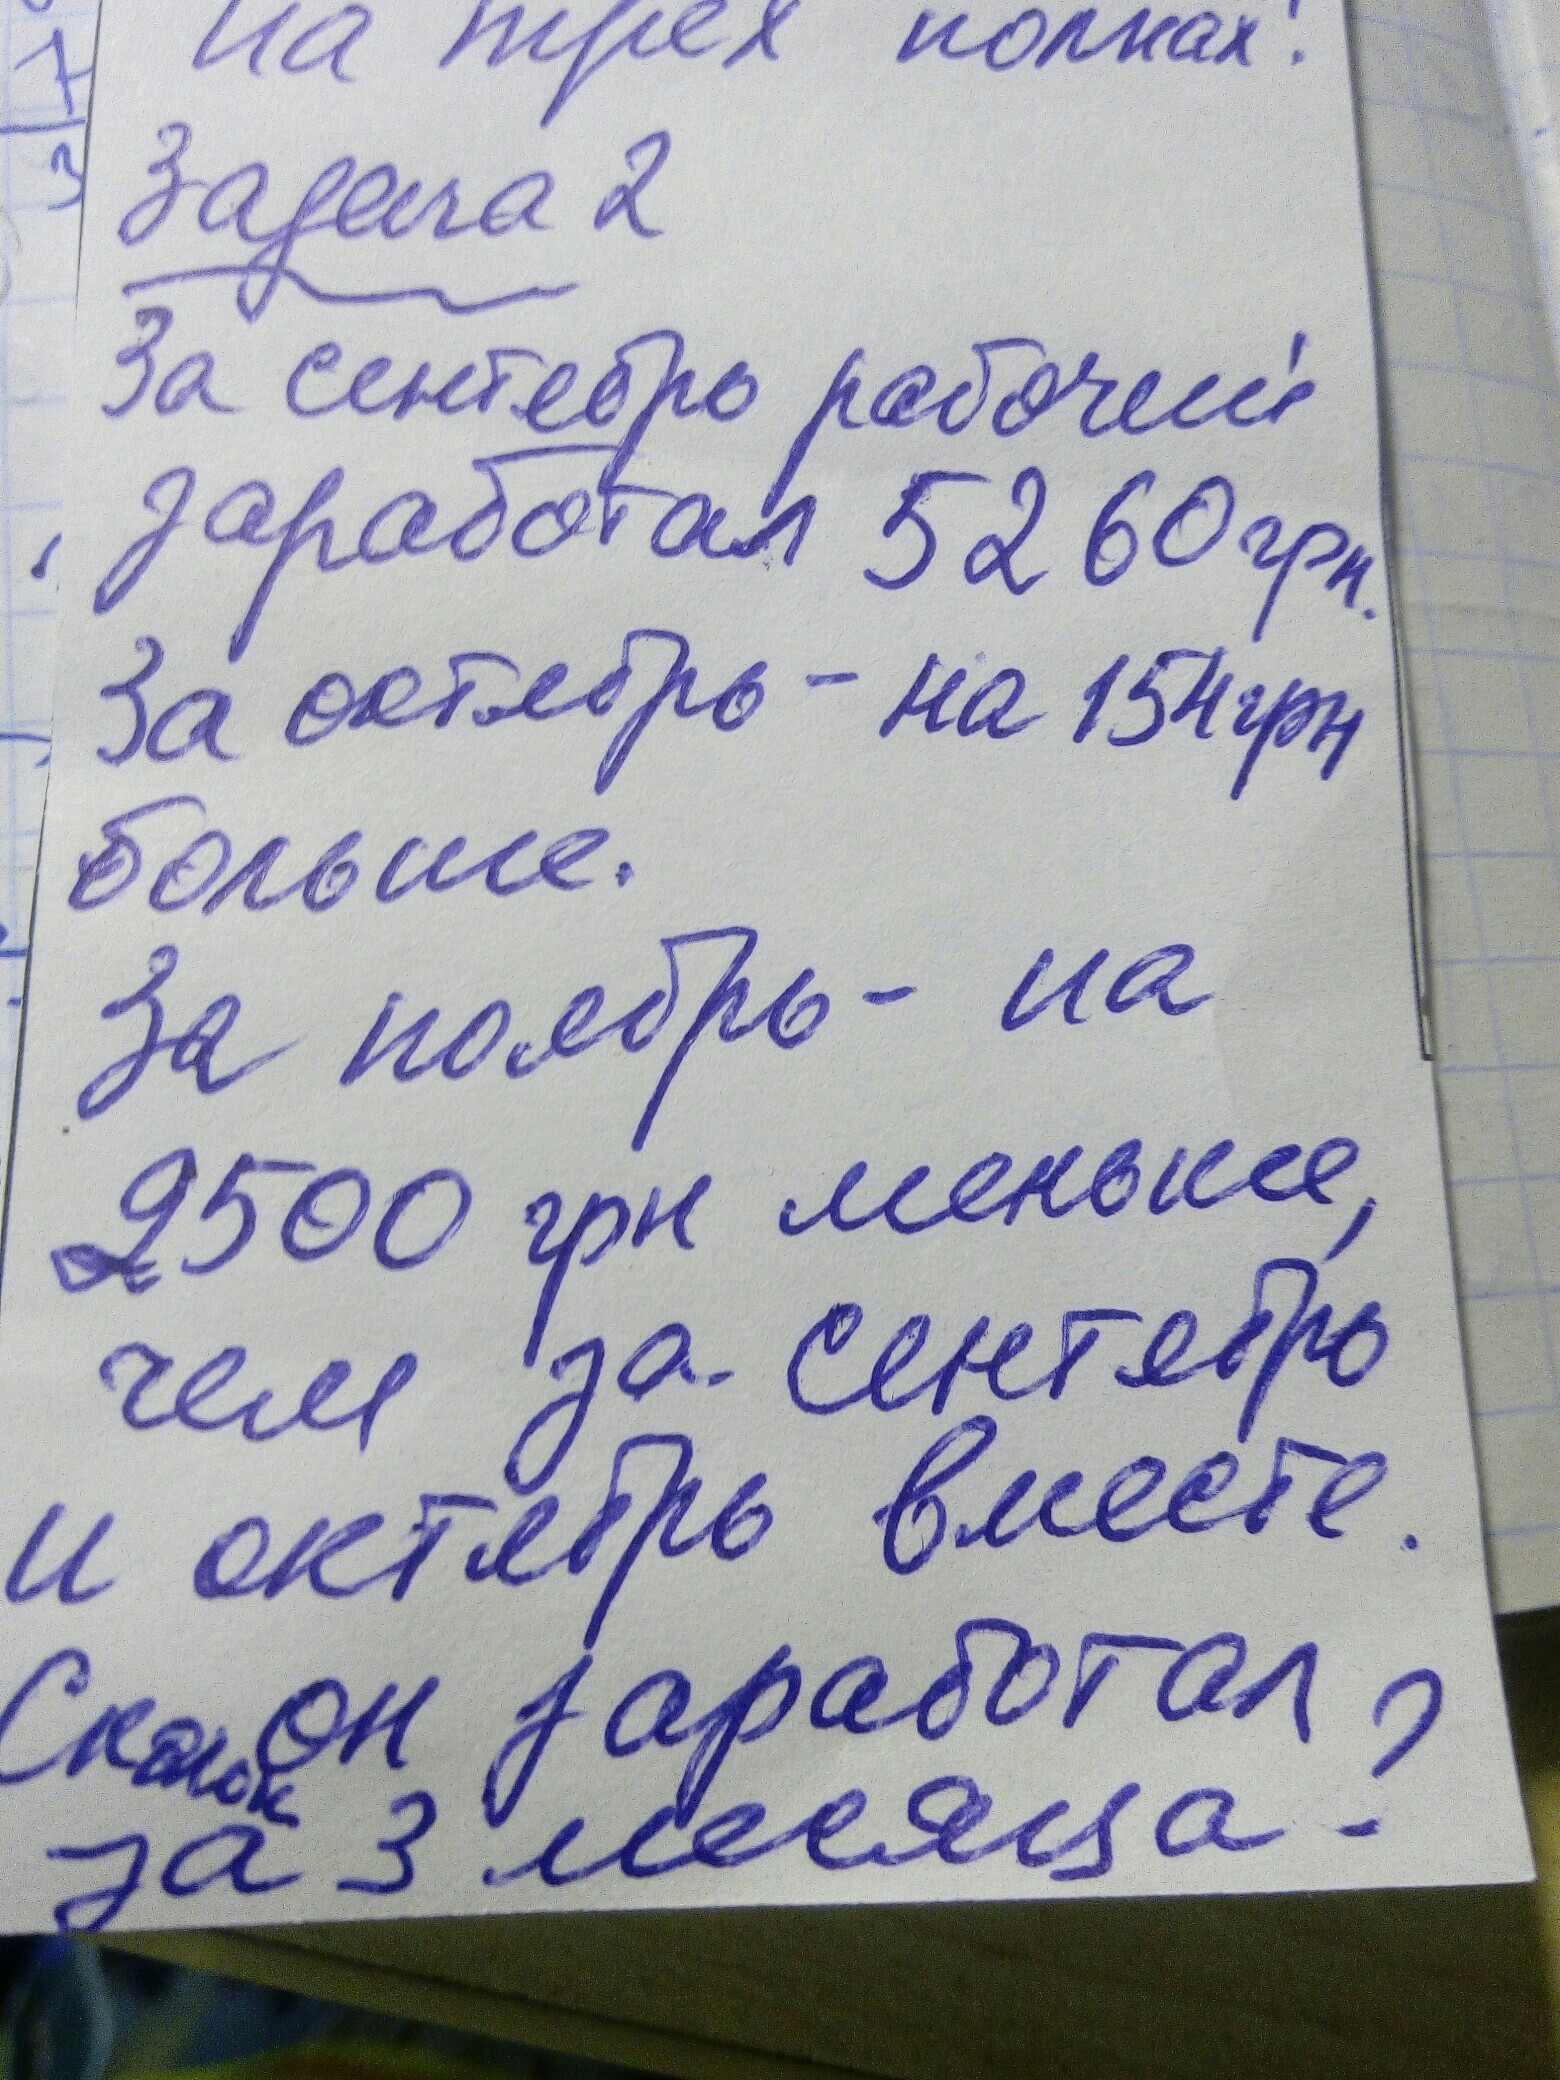 на трех полках?
Задача 2
За сентябрь рабочий
заработал 5260 грн.
За октябрь - на 154 грн
больше.
За ноябрь - на
2500 грн меньше,
чем за сентябрь
и октябрь вместе.
Сколько он заработал
за 3 месяца?